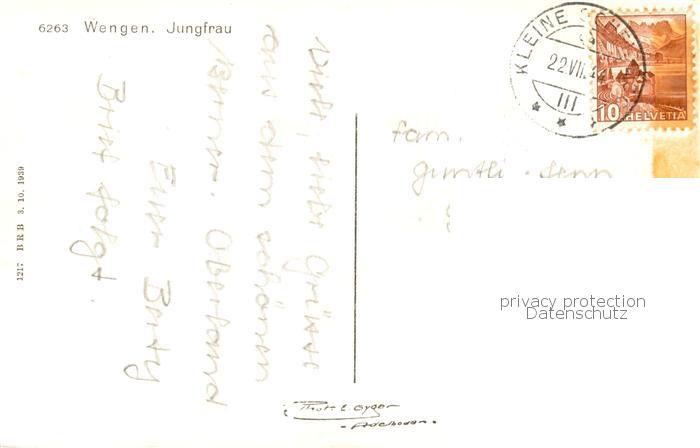 6263 Wengen. Jungfrau
KLEINE
22.VII.
III
10 HELVETIA
Viele, liebe Grüsse
aus dem schönen
Berner. Oberland
Eure Berty
Brief folgt.
Fam.
Guntli - Senn
1217 BRB 3. 10. 1939
privacy protection
Datenschutz
Phot. E. Gyger
- Adelboden -